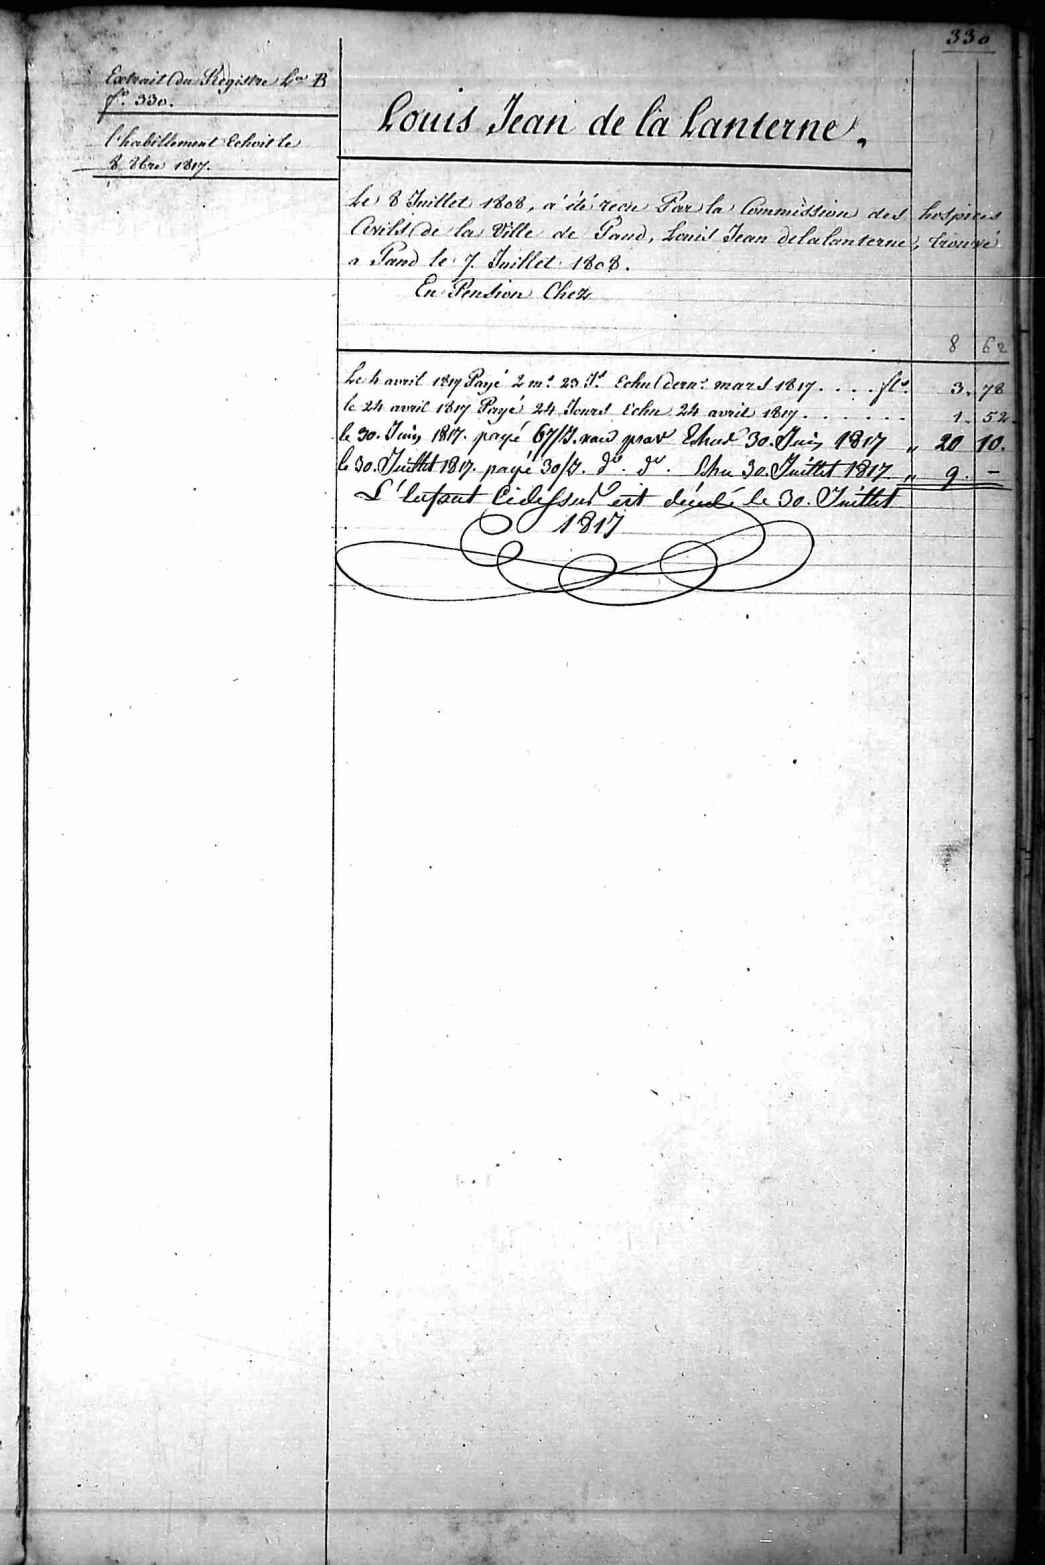 330
Extrait du Registre La B
fo. 330.
l'habillement Echoit le
8 8bre 1817.
Louis Jean de la Lanterne.
Le 8 Juillet 1808, a été recu Par la Commission des hospices
Civils de la Ville de Gand, Louis Jean delalanterne, trouvé
a Gand le 7. Juillet 1808.
En Pension Chez
8 62
Le 4 avril 1817 Payé 2 ms. 23 Js. Echu dernr. mars 1817. . . . fls. 3. 78
le 24 avril 1817 Payé 24 Jours Echu 24 avril 1817. . . . . . . 1. 52.
le 30. Juin 1817. payé 67/J. Echus 30. Juin 1817 " 20 10.
le 30. Juillet 1817. payé 30/J. do. do. Echu 30. Juillet 1817 " 9. -
L'Enfant Cidessus est décédé le 30. Juillet
1817